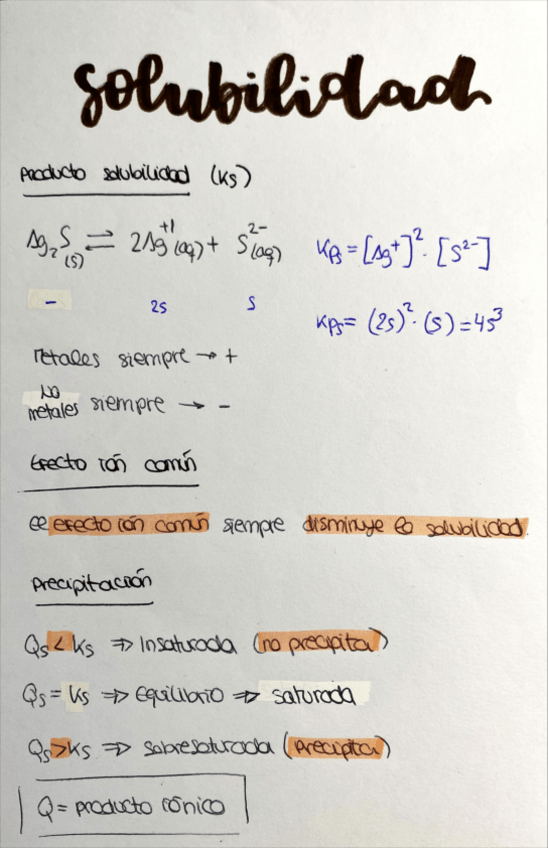 solubilidad
Producto solubilidad (Ks)
Ag₂S(s) ⇌ 2Ag⁺¹(aq) + S²⁻(aq)
Kps = [Ag⁺]² · [S²⁻]
– 2s s
Kps = (2s)² · (s) = 4s³
metales siempre → +
No metales siempre → –
Efecto ión común
el efecto ión común siempre disminuye la solubilidad.
Precipitación
Qs < Ks ⇒ Insaturada (no precipita)
Qs = Ks ⇒ Equilibrio ⇒ saturada
Qs > Ks ⇒ sobresaturada (precipita)
Q = producto iónico